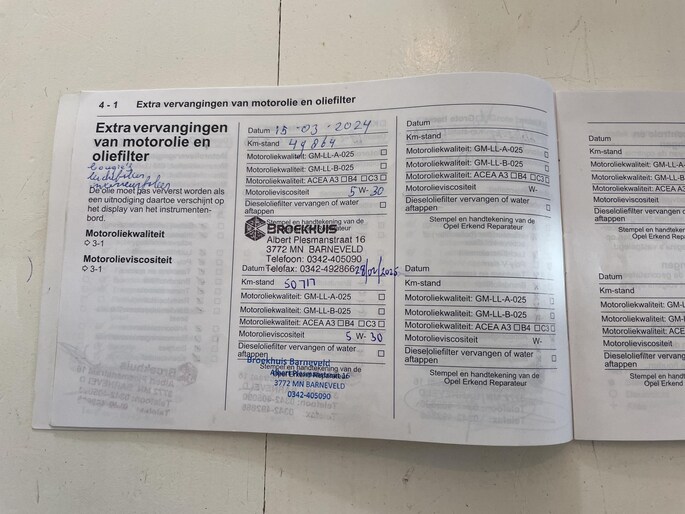 4 - 1 Extra vervangingen van motorolie en oliefilter
Extra vervangingen
van motorolie en
oliefilter
bougie's
luchtfilter
interieurfilter
De olie moet gas ververst worden als
een uitnodiging daartoe verschijnt op
het display van het instrumenten-
bord.
Motoroliekwaliteit
3-1
Motorolieviscositeit
3-1
Datum 15-03-2024
Km-stand 49864
Motoroliekwaliteit: GM-LL-A-025
Motoroliekwaliteit: GM-LL-B-025
Motoroliekwaliteit: ACEA A3 B4 C3
Motorolieviscositeit 5 W- 30
Dieseloliefilter vervangen of water
aftappen
Stempel en handtekening van de
BROEKHUIS
Albert Plesmanstraat 16
3772 MN BARNEVELD
Telefoon: 0342-405090
Telefax: 0342-492866
Datum 28/02/2025
Km-stand 50717
Motoroliekwaliteit: GM-LL-A-025
Motoroliekwaliteit: GM-LL-B-025
Motoroliekwaliteit: ACEA A3 B4 C3
Motorolieviscositeit 5 W- 30
Dieseloliefilter vervangen of water
aftappen
Stempel en handtekening van de
Opel Erkend Reparateur
Broekhuis Barneveld
Albert Plesmanstraat 16
3772 MN BARNEVELD
0342-405090
Datum
Km-stand
Motoroliekwaliteit: GM-LL-A-025
Motoroliekwaliteit: GM-LL-B-025
Motoroliekwaliteit: ACEA A3 B4 C3
Motorolieviscositeit W-
Dieseloliefilter vervangen of water
aftappen
Stempel en handtekening van de
Opel Erkend Reparateur
Datum
Km-stand
Motoroliekwaliteit: GM-LL-A-025
Motoroliekwaliteit: GM-LL-B-025
Motoroliekwaliteit: ACEA A3 B4 C3
Motorolieviscositeit W-
Dieseloliefilter vervangen of water
aftappen
Stempel en handtekening van de
Opel Erkend Reparateur
Datum
Km-stand
Motoroliekwaliteit: GM-LL-A
Motoroliekwaliteit: GM-LL-B
Motoroliekwaliteit: ACEA A3
Motorolieviscositeit
Dieseloliefilter vervangen of
aftappen
Stempel en handteken
Opel Erkend Re
Datum
Km-stand
Motoroliekwaliteit: GM-LL-A
Motoroliekwaliteit: GM-LL-B
Motoroliekwaliteit: ACEA A3
Motorolieviscositeit
Dieseloliefilter vervangen
aftappen
Stempel en handte
Opel Erkend